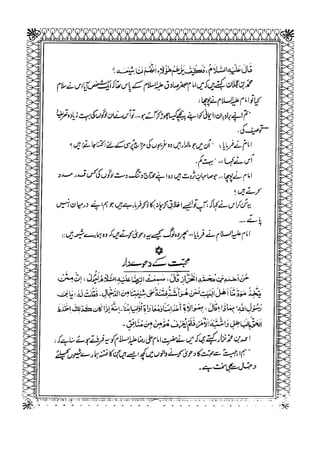 قَالَ عَلَيْهِ السَّلَامُ: فَكَيْفَ يَزْعُمُ هٰؤُلَاءِ أَنَّهُمْ لَنَا شِيعَه؟
محمد بن عجلان کہتے ہیں کہ میں امام جعفر صادق علیہ السلام کے پاس تھا کہ ایک شخص آیا اور اس نے سلام
کیا تو امام علیہ السلام نے پوچھا:
تم اپنے برادران ایمانی کو اپنے پیچھے کیسا چھوڑ کر آئے ہو۔ تو اُس نے ان لوگوں کی بہت زیادہ تعریف
و توصیف کی۔
امام نے فرمایا: اُن میں جو مالدار ہیں وہ غریبوں کی مزاج پرسی کے لئے جاتے ہیں؟
اُس نے کہا: بہت کم۔
امام نے پوچھا: جو صاحبان ثروت ہیں وہ اپنے محتاج و تنگ دست لوگوں کی کس قدر مدد
کرتے ہیں؟
اس نے کہا کہ: آپ تو ایسے اخلاق کا ذکر فرما رہے ہیں جو ہم اپنے درمیان نہیں
پاتے۔
امام علیہ السلام نے فرمایا: پھر وہ لوگ کیسے یہ دعویٰ کرتے ہیں کہ وہ ہمارے شیعہ ہیں؟
محبت کے دعوے دار
أَحْمَدَ بْنِ مُحَمَّدٍ قَالَ: سَمِعْتُ الرِّضَا عَلَيْهِ السَّلَامُ يَقُولُ: إِنَّ مِمَّنْ
يَتَّخِذُ مَوَدَّتَنَا أَهْلَ الْبَيْتِ لَمَنْ هُوَ أَشَدُّ فِتْنَةً عَلَى شِيعَتِنَا مِنَ الدَّجَّالِ. فَقُلْتُ لَهُ: يَابْنَ
رَسُولِ اللهِ بِمَاذَا؟ قَالَ: بِمُوَالَاةِ أَعْدَائِنَا وَمُعَادَاةِ أَوْلِيَائِنَا. إِنَّهُ إِذَا كَانَ كَذٰلِكَ اخْتَلَطَ
الْحَقُّ بِالْبَاطِلِ وَاشْتَبَهَ الْأَمْرُ فَلَمْ يُعْرَفْ مُؤْمِنٌ مِنْ مُنَافِقٍ.
احمد بن محمد کہتے ہیں کہ میں نے حضرت امام علی رضا علیہ السلام کو یہ فرماتے ہوئے سنا ہے کہ:
ہم اہلبیت سے محبت کا دعویٰ کرنے والوں میں کچھ ایسے ہیں جن کا فتنہ ہمارے شیعوں کیلئے
دجال سے بھی سخت ہے۔